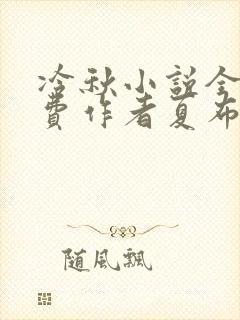 冷秋小説全
費作者夏布
随風飄